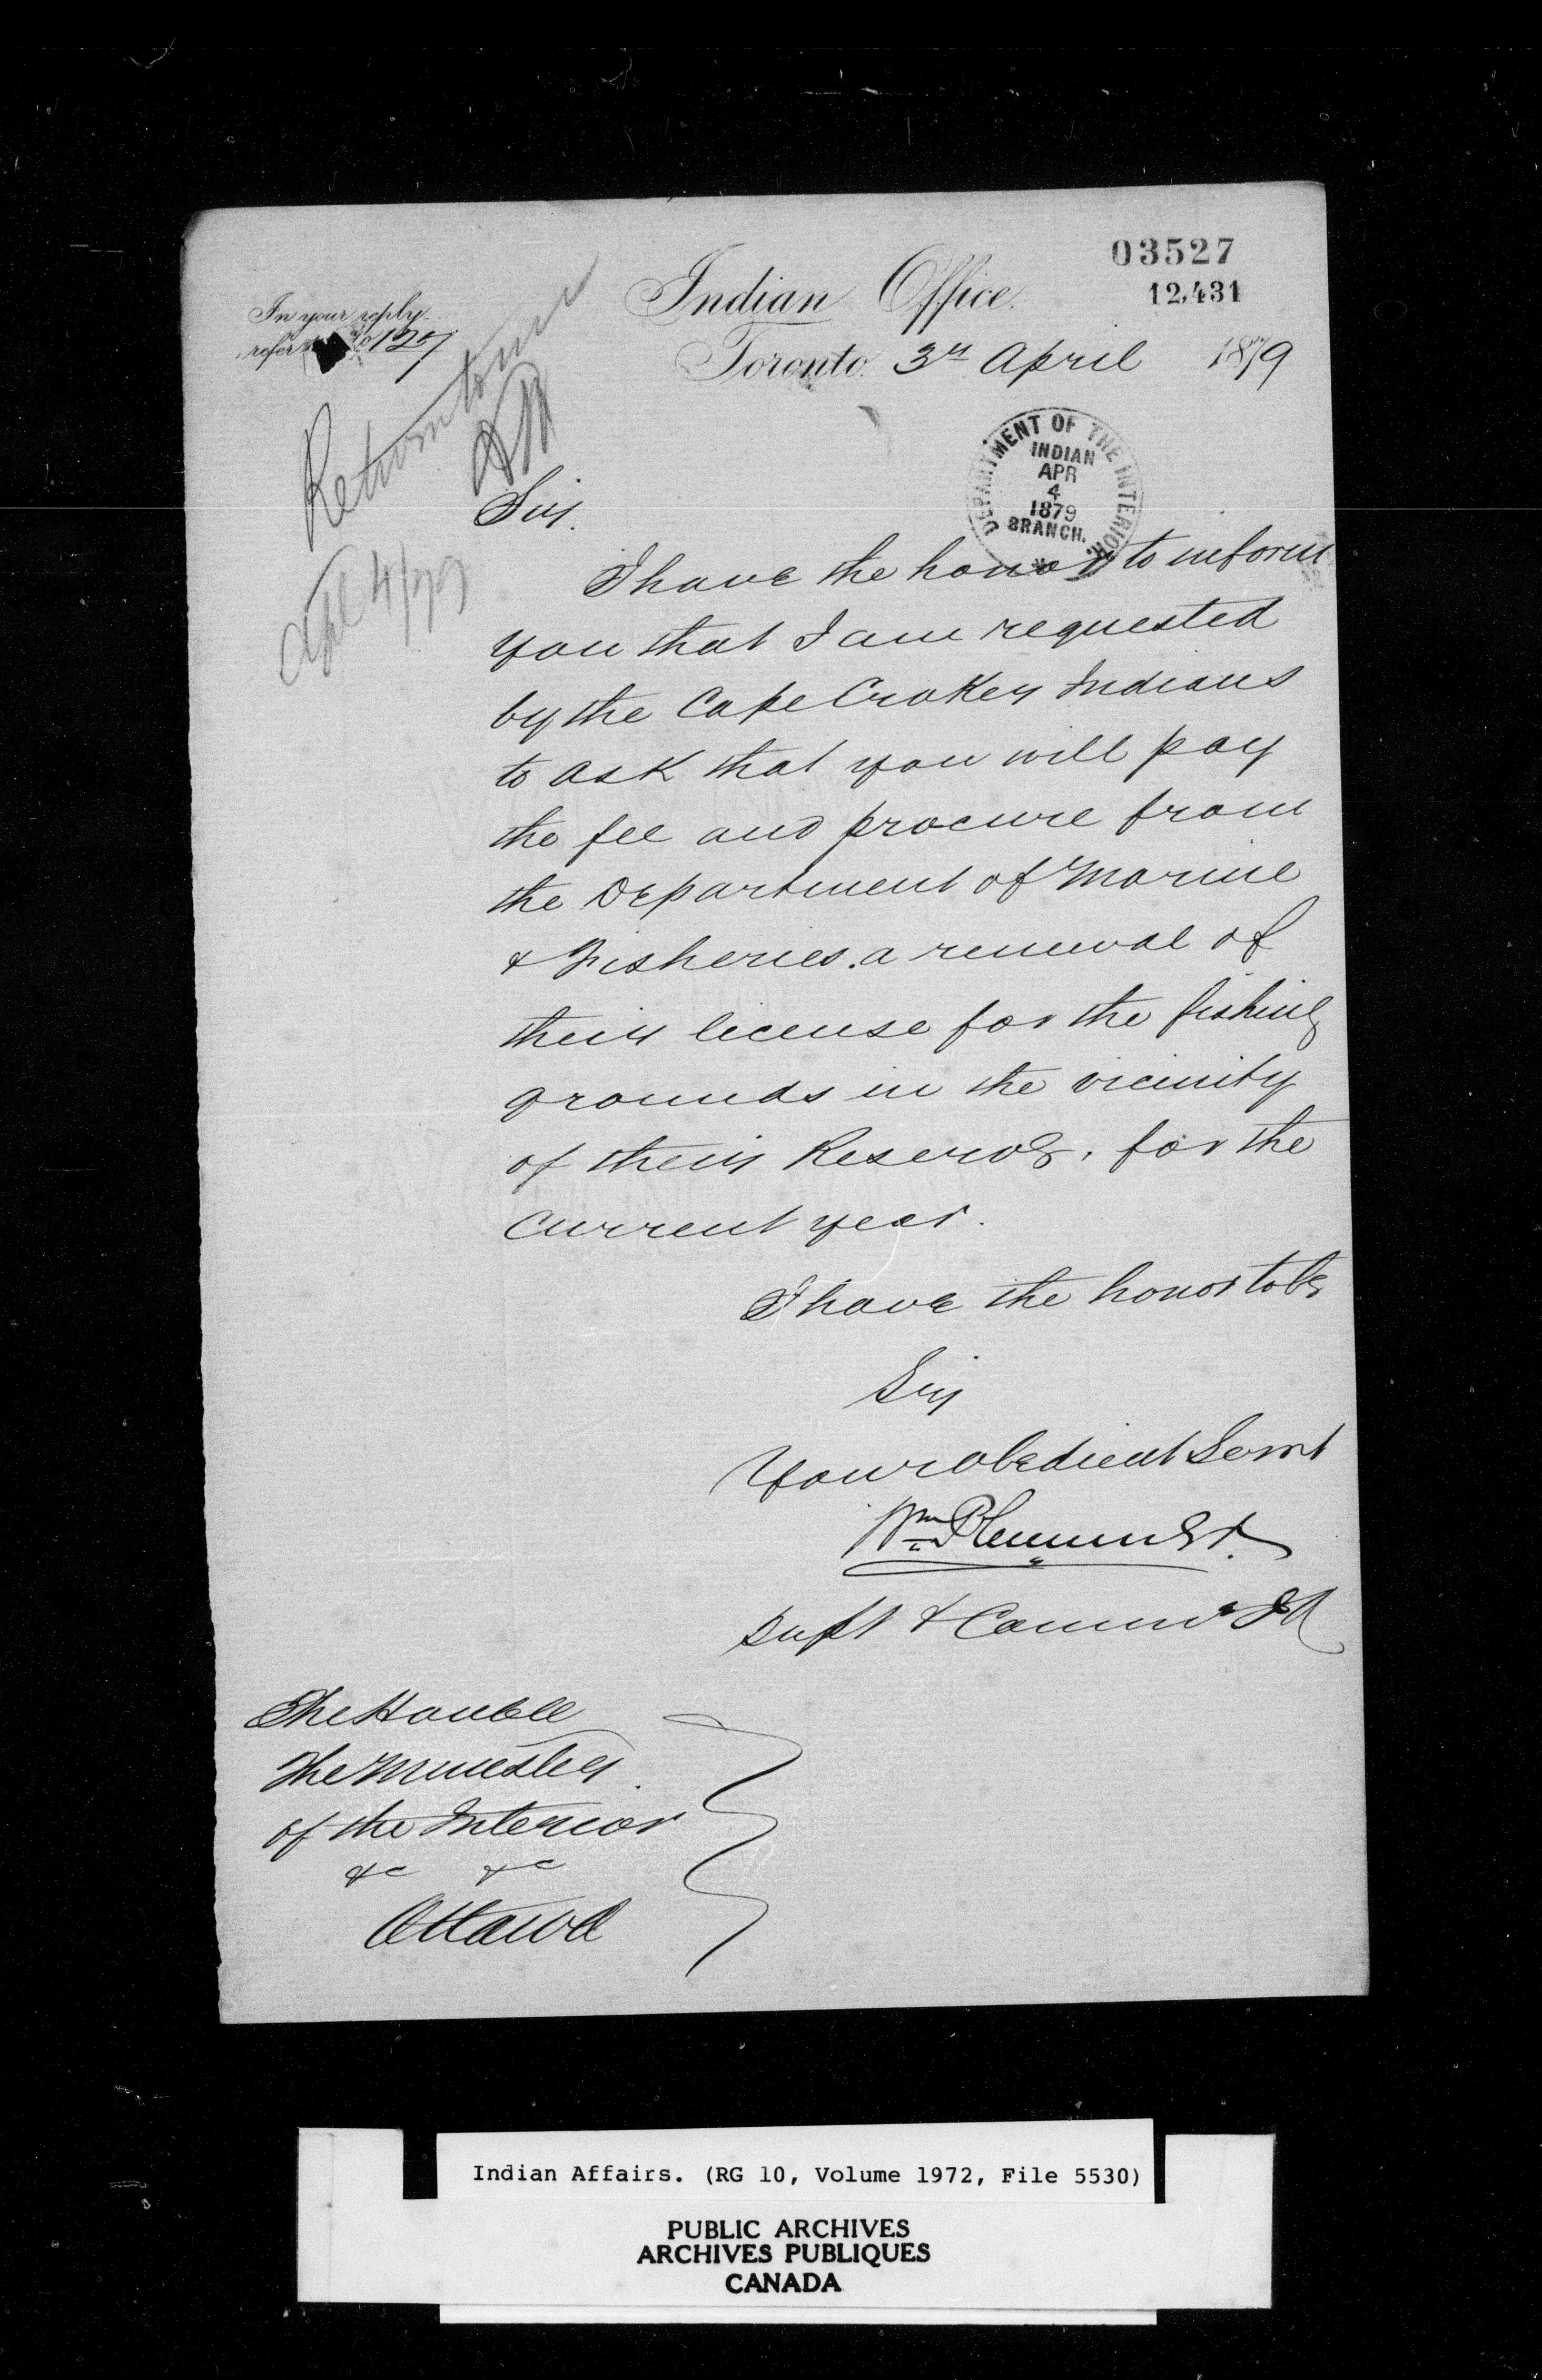 03527
12,431
Indian Office
In your reply
refer to No 127
Toronto 3rd April 1879
Return to me
Apl 4/79
DEPARTMENT OF THE INTERIOR
INDIAN
APR
4
1879
BRANCH.
Sir.
I have the honor to inform
you that I am requested
by the Cape Croker Indians
to ask that you will pay
the fee and procure from
the Department of Marine
& Fisheries. a renewal of
their license for the fishing
grounds in the vicinity
of their Reserve, for the
current year.
I have the honor to be
Sir
Your obedient Servt
Wm Plummer.
Supt & Commr I A
The Honble
The Minister
of the Interior
&c &c
Ottawa
Indian Affairs. (RG 10, Volume 1972, File 5530)
PUBLIC ARCHIVES
ARCHIVES PUBLIQUES
CANADA